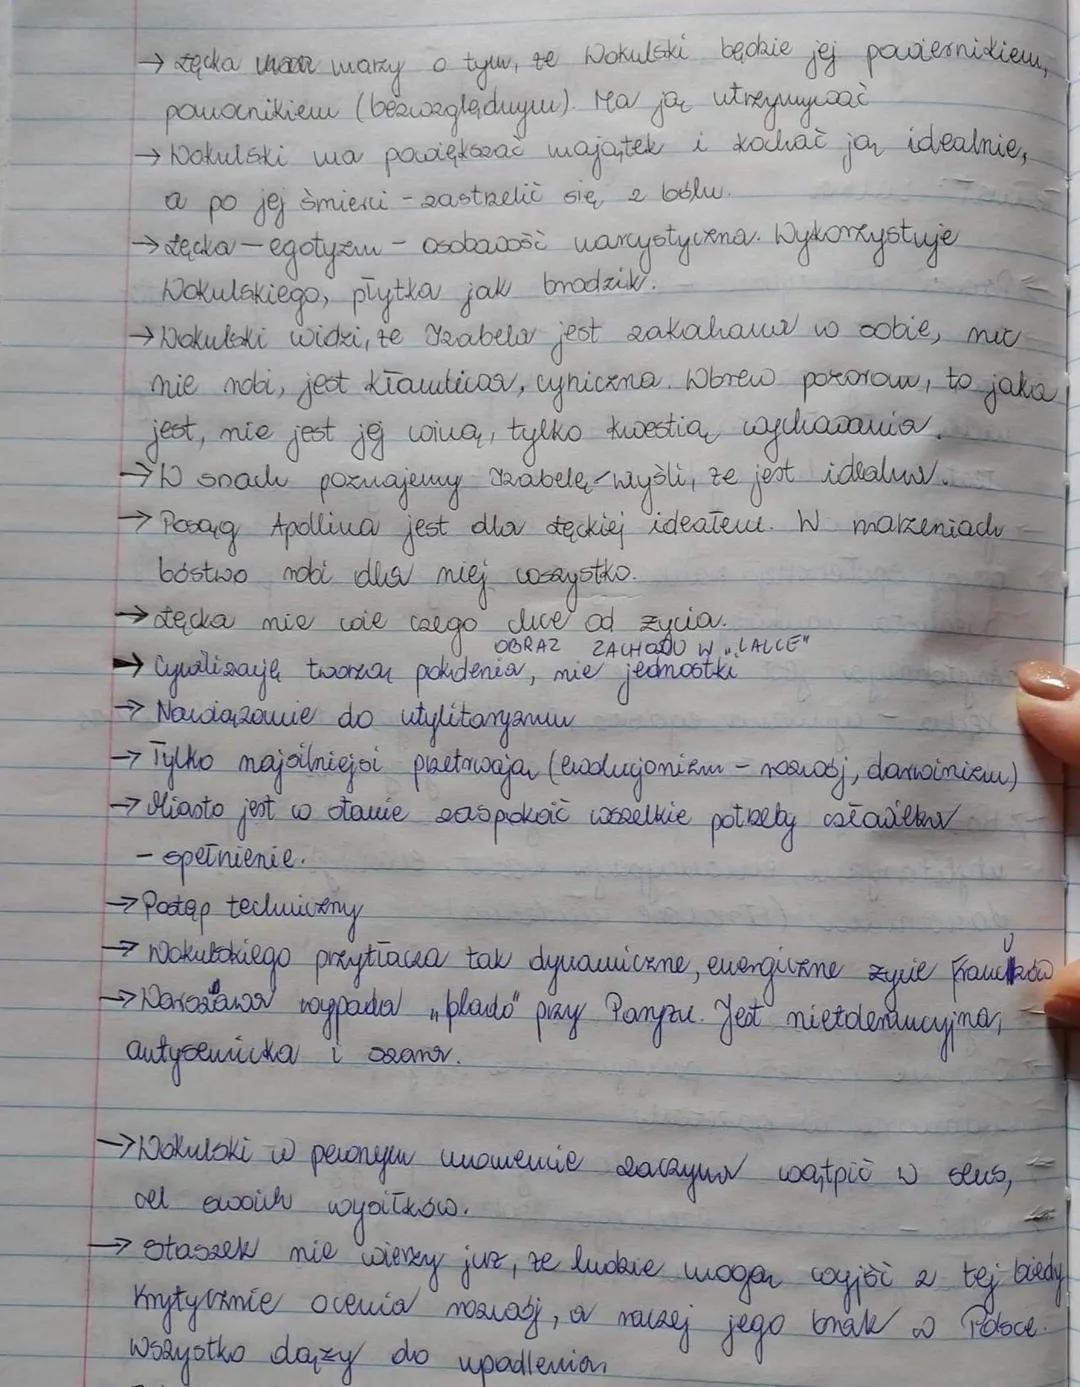 → Łęcka marzy o tym, że Wokulski będzie jej powiernikiem,
pomocnikiem (bezwzględnym). Ma ją utrzymywać
→ Wokulski ma powiększać majątek i kochać ją idealnie,
a po jej śmierci - zastrzelić się z bólu.
→ Łęcka - egotyzm - osobowość narcystyczna. Wykorzystuje
Wokulskiego, płytka jak brodzik.
→ Wokulski widzi, że Izabela jest zakochana w sobie, nic
nie robi, jest kłamliwa, cyniczna. Wbrew pozorom, to jaka
jest, nie jest jej winą, tylko kwestią wychowania.
→ W snach poznajemy Izabelę - myśli, że jest idealna.
→ Posąg Apollina jest dla Łęckiej ideałem. W marzeniach
bóstwo robi dla niej wszystko.
→ Łęcka nie wie czego chce od życia.
OBRAZ ZACHODU W „LALCE"
→ Cywilizację tworzą pokolenia, nie jednostki
→ Nawiązanie do utylitaryzmu
→ Tylko najsilniejsi przetrwają (ewolucjonizm - rozwój, darwinizm)
→ Miasto jest w stanie zaspokoić wszelkie potrzeby człowieka
- spełnienie.
→ Postęp techniczny
→ Wokulskiego przytłacza tak dynamiczne, energiczne życie Francuzów
→ Warszawa wypada „blado" przy Paryżu. Jest nietolerancyjna,
antysemicka i szara.
→ Wokulski w pewnym momencie zaczyna wątpić w sens,
cel swoich wysiłków.
→ Staszek nie wierzy już, że ludzie mogą wyjść z tej biedy
Krytycznie ocenia rozwój, a raczej jego brak w Polsce.
Wszystko dąży do upadlenia